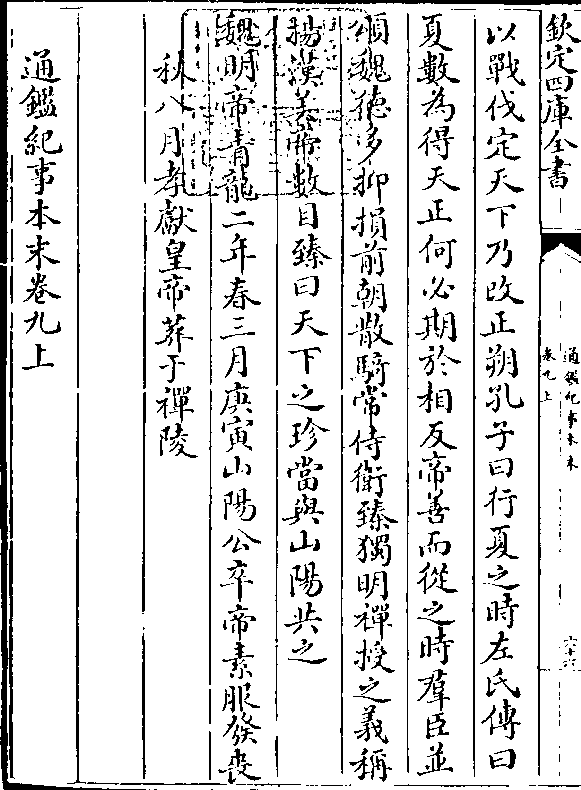 欽定四庫全書
通鑑紀事本末
卷九上
以戰伐定天下乃改正朔孔子曰行夏之時左氏傳曰
夏數為得天正何必期於相反帝善而從之時羣臣並
頌魏德多抑損前朝散騎常侍衛臻獨明禪授之義稱
揚漢美帝數目臻曰天下之珍當與山陽共之
魏明帝青龍二年春三月庚寅山陽公卒帝素服發喪
秋八月孝獻皇帝葬于禪陵
通鑑紀事本末卷九上